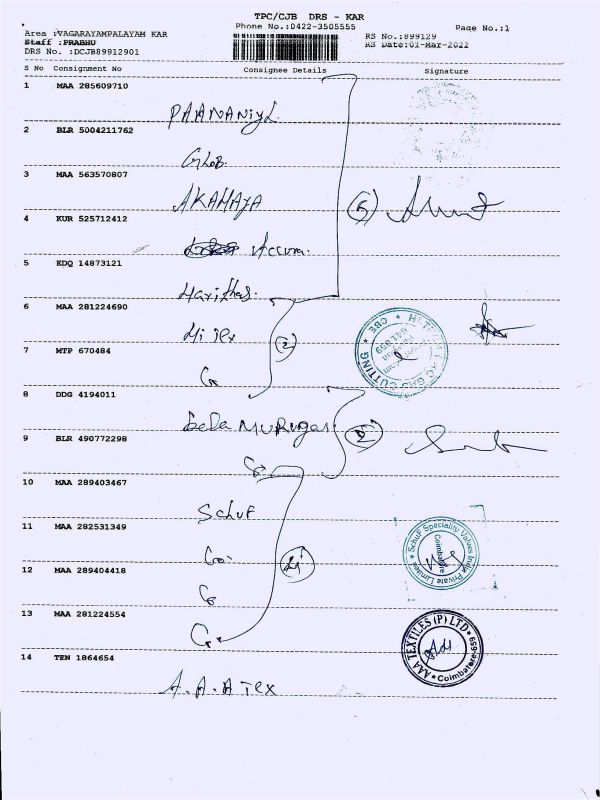 TPC/CJB DRS - KAR
Phone No.:0422-3505555
Page No.:1
Area :VAGARAYAMPALAYAM KAR
Staff :PRABHU
DRS No. :DCJB89912901
RS No.:899129
RS Date:01-Mar-2022
S No Consignment No Consignee Details Signature
1 MAA 285609710
PAANANIYL
2 BLR 5004211762
GLOB.
3 MAA 563570807
AKAHAYA
4 KUR 525712412
Accura.
5 EDQ 14873121
Harithas.
6 MAA 281224690
Hi Tex
7 MTP 670484
8 DDG 4194011
Bala MURUGAN
9 BLR 490772298
10 MAA 289403467
SCHUF
11 MAA 282531349
12 MAA 289404418
13 MAA 281224554
14 TEN 1864654
A.A.A Tex
(5)
(2)
(2)
(4)
GAS CUTTING * CBE *
641 659
SchuF Speciality Valves India Private Limited
Coimbatore
AAA TEXTILES (P) LTD * Coimbatore-659 *